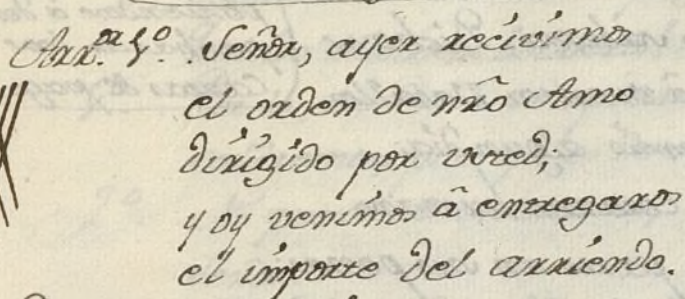 Arr.or 1.º Señor, ayer recivimos
el orden de nrõ Amo
dirigido por vsted;
y oy venimos â entregaros
el importe del arriendo.